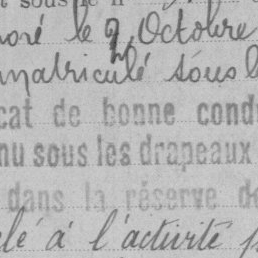 oré le 9 Octobre
matriculé sous l
cat de bonne cond
nu sous les drapeaux
dans la réserve de
lé à l'activité p